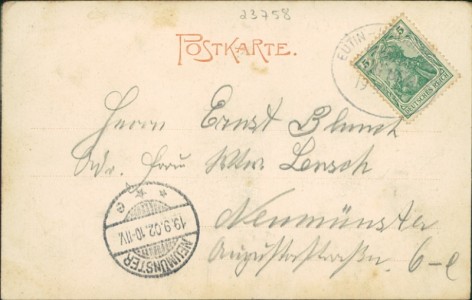 23758
POSTKARTE.
EUTIN
5 5
DEUTSCHES REICH
Herrn Ernst
Adr. Frau Wwe Lensch
Neumünster
Auguststraße 6-
NEUMÜNSTER
19.9.02.10-11V.